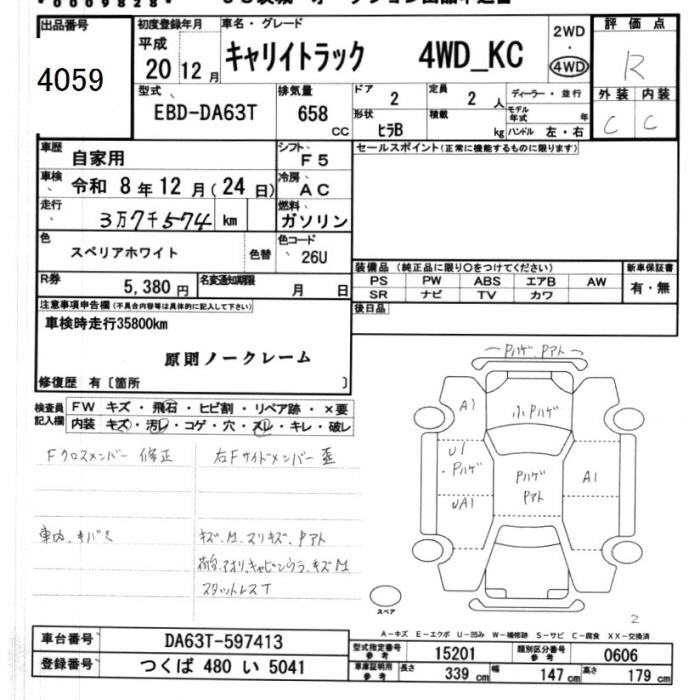 出品番号
4059
初度登録年月
平成
20 12月
車名・グレード
キャリイトラック 4WD_KC
2WD
・
4WD
評価点
R
外装 内装
C C
型式
EBD-DA63T
排気量
658 CC
ドア
2
定員
2 人
形状
ヒラB
積載
kg
ディーラー・並行
モデル年式 年
ハンドル 左・右
車歴
自家用
シフト
F5
車検
令和 8年12月(24日)
冷房
AC
走行
3万7千574 km
燃料
ガソリン
色
スペリアホワイト
色替
色コード
26U
R券
5,380円
名変通知期限
月 日
セールスポイント(正常に機能するものに限ります)
装備品 (純正品に限り○をつけてください)
PS PW ABS エアB AW
SR ナビ TV カワ
新車保証書
有・無
後日品
注意事項申告欄(不具合内容等は具体的に記入して下さい)
車検時走行35800km
原則ノークレーム
修復歴 有〔箇所 〕
検査員記入欄
FW キズ・飛石・ヒビ割・リペア跡・×要
内装 キズ・汚レ・コゲ・穴・スレ・キレ・破レ
Fクロスメンバー 修正
右Fサイドメンバー 歪
車内、キバミ
キズ、M、スリキズ、Pアト
荷台、アオリ、キャビンウラ、キズM
スタットレスT
Pハゲ、Pアト
A1
小Pハゲ
U1
・Pハゲ
Pハゲ
Pアト
A1
UA1
スペア
2
A-キズ E-エクボ U-凹み W-補修跡 S-サビ C-腐食 XX-交換済
車台番号
DA63T-597413
登録番号
つくば 480 い 5041
型式指定番号
参考
15201
類別区分番号
参考
0606
車庫証明用
参考
長さ 339 cm
幅 147 cm
高さ 179 cm